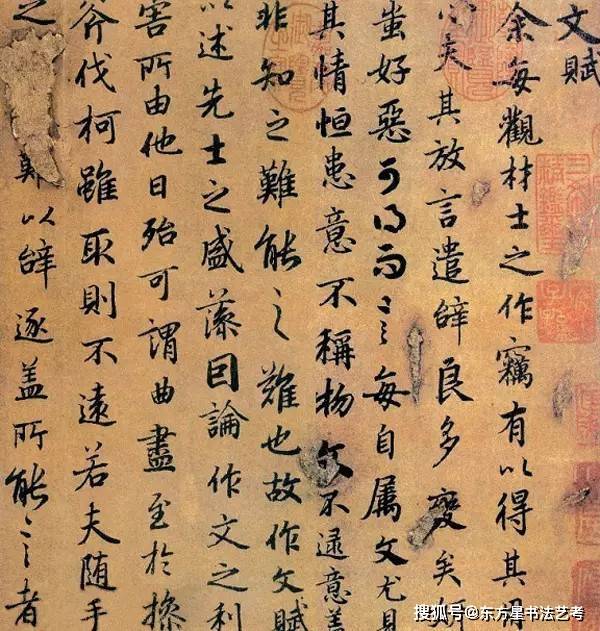 文賦
余每觀材士之作竊有以得其用
心矣其放言遣辝良多變矣妍
蚩好惡可得而言每自属文尤見
其情恒患意不稱物文不逮意盖
非知之難能之難也故作文賦
以述先士之盛藻因論作文之利
害所由他日殆可謂曲盡至於操
斧伐柯雖取則不遠若夫随手
之難以辝逐盖所能言者
搜狐号@东方星书法艺考